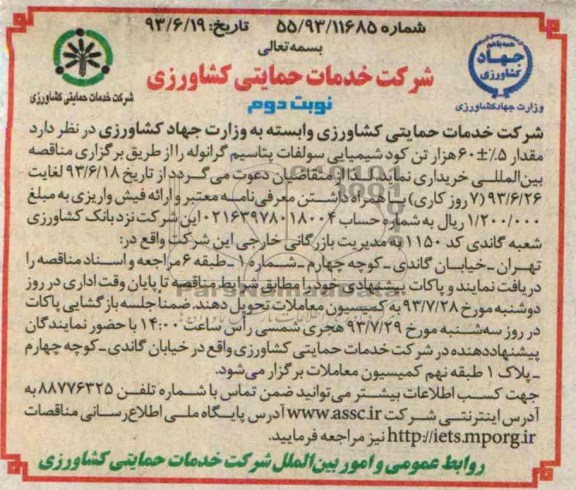 شماره ۵۵/۹۳/۱۱۶۸۵ تاریخ: ۹۳/۶/۱۹
بسمه تعالی
همه با هم
جهاد
کشاورزی
وزارت جهاد کشاورزی
شرکت خدمات حمایتی کشاورزی
شرکت خدمات حمایتی کشاورزی
نوبت دوم
شرکت خدمات حمایتی کشاورزی وابسته به وزارت جهاد کشاورزی در نظر دارد
مقدار ۵٪±۶۰ هزار تن کود شیمیایی سولفات پتاسیم گرانوله را از طریق برگزاری مناقصه
بین‌المللی خریداری نماید. لذا از متقاضیان دعوت می‌گردد از تاریخ ۹۳/۶/۱۸ لغایت
۹۳/۶/۲۶ (۷ روز کاری) با همراه داشتن معرفی‌نامه معتبر و ارائه فیش واریزی به مبلغ
۱/۲۰۰/۰۰۰ ریال به شماره حساب ۰۲۱۶۳۹۷۸۰۱۸۰۰۴ این شرکت نزد بانک کشاورزی
شعبه گاندی کد ۱۱۵۰ به مدیریت بازرگانی خارجی این شرکت واقع در:
تهران ـ خیابان گاندی ـ کوچه چهارم ـ شماره ۱ ـ طبقه ۶ مراجعه و اسناد مناقصه را
دریافت نمایند و پاکات پیشنهادی خود را مطابق شرایط مناقصه تا پایان وقت اداری در روز
دوشنبه مورخ ۹۳/۷/۲۸ به کمیسیون معاملات تحویل دهند. ضمنا جلسه بازگشایی پاکات
در روز سه‌شنبه مورخ ۹۳/۷/۲۹ هجری شمسی رأس ساعت ۱۴:۰۰ با حضور نمایندگان
پیشنهاددهنده در شرکت خدمات حمایتی کشاورزی واقع در خیابان گاندی ـ کوچه چهارم
ـ پلاک ۱ طبقه نهم کمیسیون معاملات برگزار می‌شود.
جهت کسب اطلاعات بیشتر می‌توانید ضمن تماس با شماره تلفن ۸۸۷۷۶۳۲۵ به
آدرس اینترنتی شرکت www.assc.ir آدرس پایگاه ملی اطلاع‌رسانی مناقصات
http://iets.mporg.ir نیز مراجعه فرمایید.
روابط عمومی و امور بین‌الملل شرکت خدمات حمایتی کشاورزی